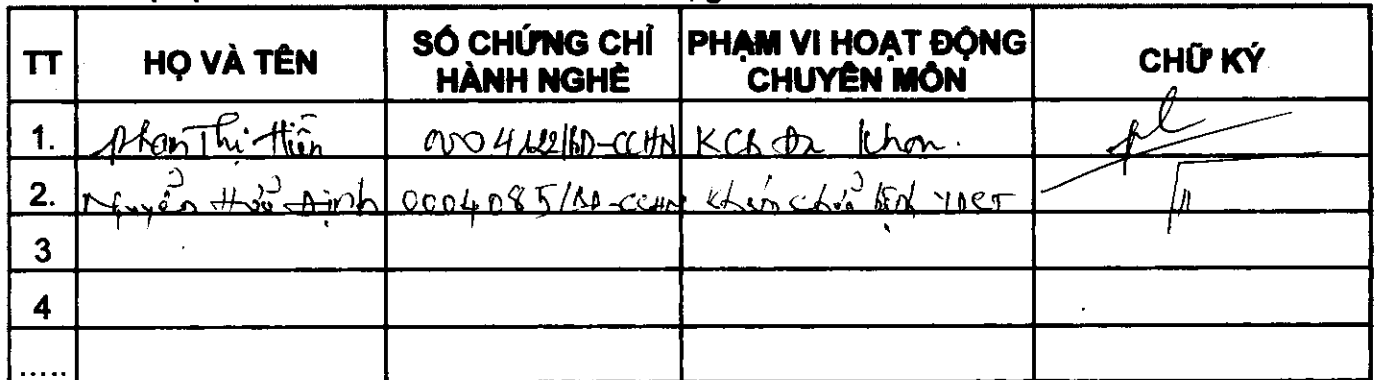 TT HỌ VÀ TÊN SỐ CHỨNG CHỈ HÀNH NGHỀ PHẠM VI HOẠT ĐỘNG CHUYÊN MÔN CHỮ KÝ
1. Phan Thị Hiền /BD-CCHN KCB Đa Khoa.
2. Nguyễn Hữu Định 0004085/BD-CCHN Khám chữa bệnh YHCT
3
4
.....